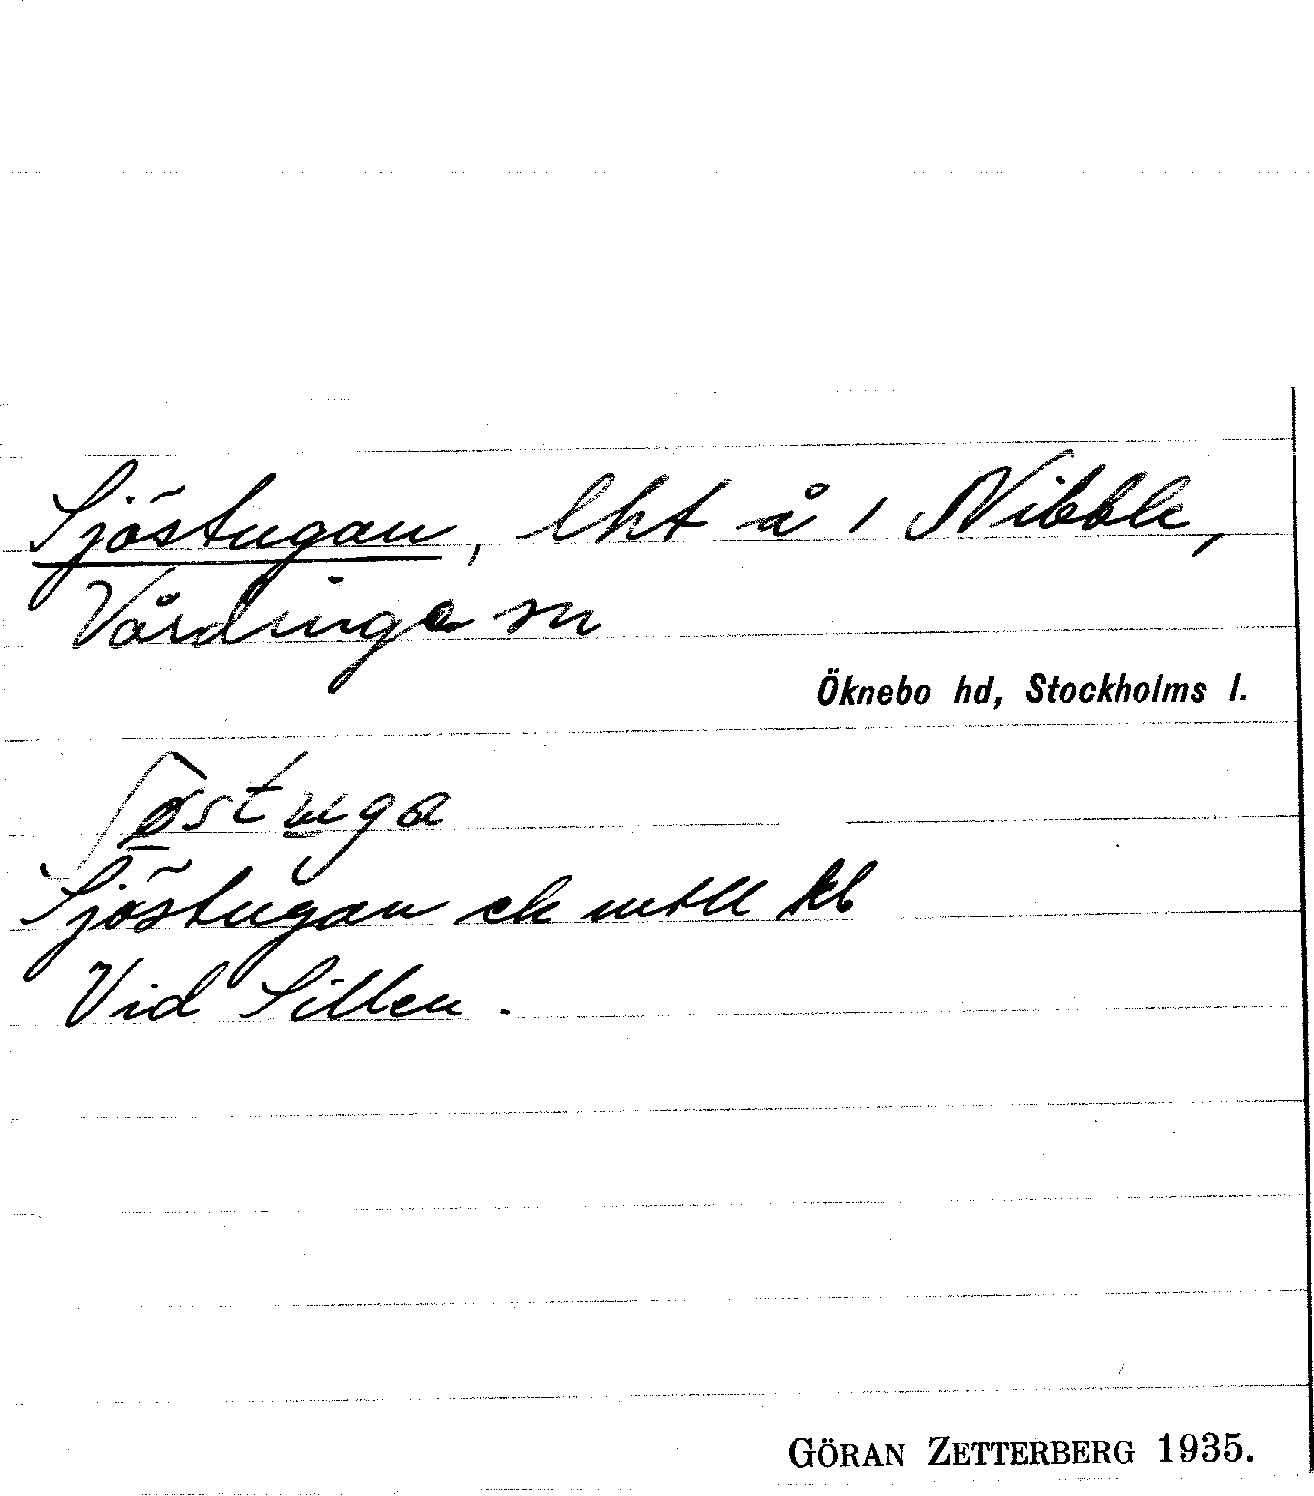 Sjöstugan, lht å 1 Nibble,
Vårdinga sn
Öknebo hd, Stockholms l.
ʃøstuga
Sjöstugan ek
Vid Sillen.
GÖRAN ZETTERBERG 1935.